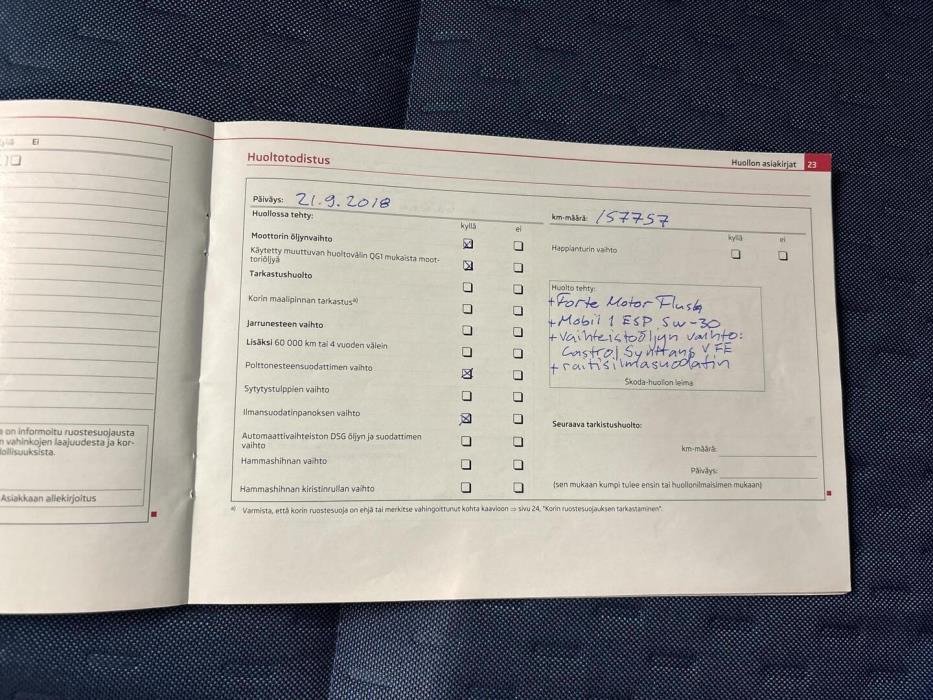 Ei
Huoltotodistus
Huollon asiakirjat 23
Päiväys: 21.9.2018
km-määrä: 157757
Huollossa tehty:
kyllä ei
kyllä ei
Moottorin öljynvaihto
Happianturin vaihto
Käytetty muuttuvan huoltovälin QG1 mukaista moot-
toriöljyä
Tarkastushuolto
Korin maalipinnan tarkastusa)
Jarrunesteen vaihto
Lisäksi 60 000 km tai 4 vuoden välein
Polttonesteensuodattimen vaihto
Sytytystulppien vaihto
Ilmansuodatinpanoksen vaihto
Automaattivaihteiston DSG öljyn ja suodattimen
vaihto
Hammashihnan vaihto
Hammashihnan kiristinrullan vaihto
Huolto tehty:
+Forte Motor Flush
+Mobil 1 ESP 5w-30
+Vaihteistoöljyn vaihto:
Castrol Syntrans VFE
+raitisilmasuodatin
Skoda-huollon leima
Seuraava tarkistushuolto:
km-määrä:
Päiväys:
(sen mukaan kumpi tulee ensin tai huollonilmaisimen mukaan)
a) Varmista, että korin ruostesuoja on ehjä tai merkitse vahingoittunut kohta kaavioon ⇒ sivu 24, "Korin ruostesuojauksen tarkastaminen".
on informoitu ruostesuojausta
vahinkojen laajuudesta ja kor-
Asiakkaan allekirjoitus